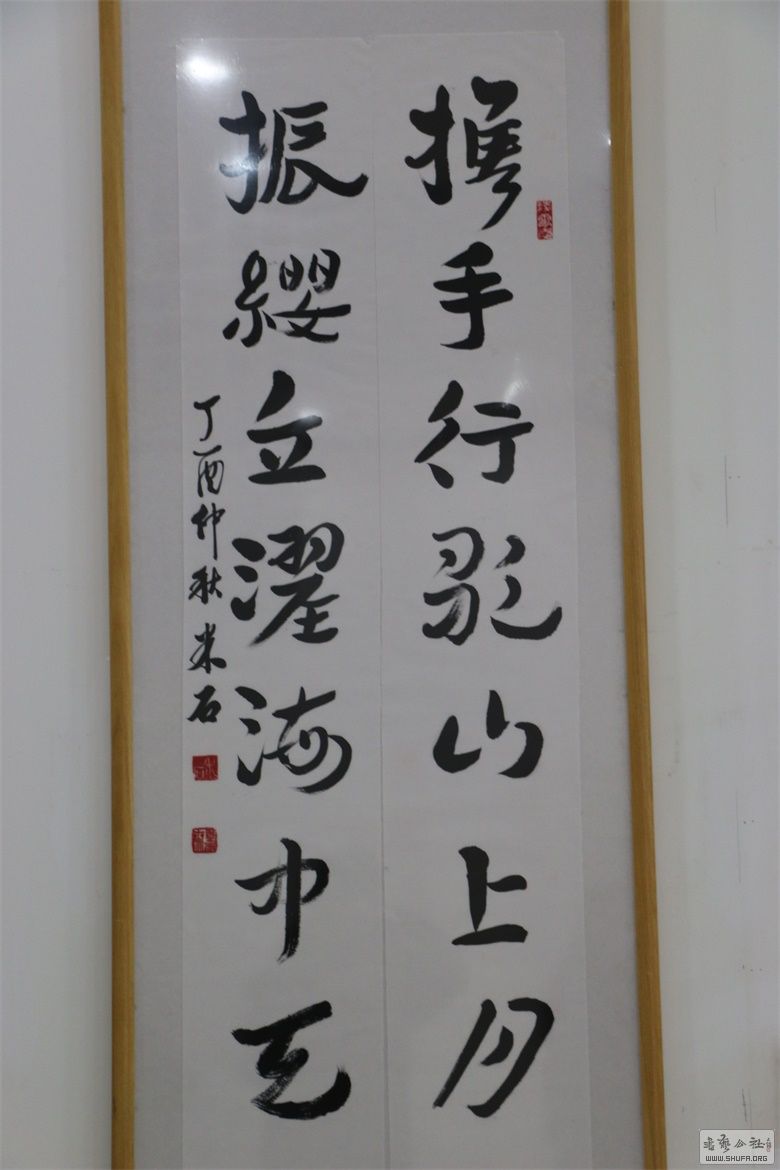 携手行歌山上月
振纓立濯海中天
丁酉仲秋米石
書藝公社
WWW.SHUFA.ORG